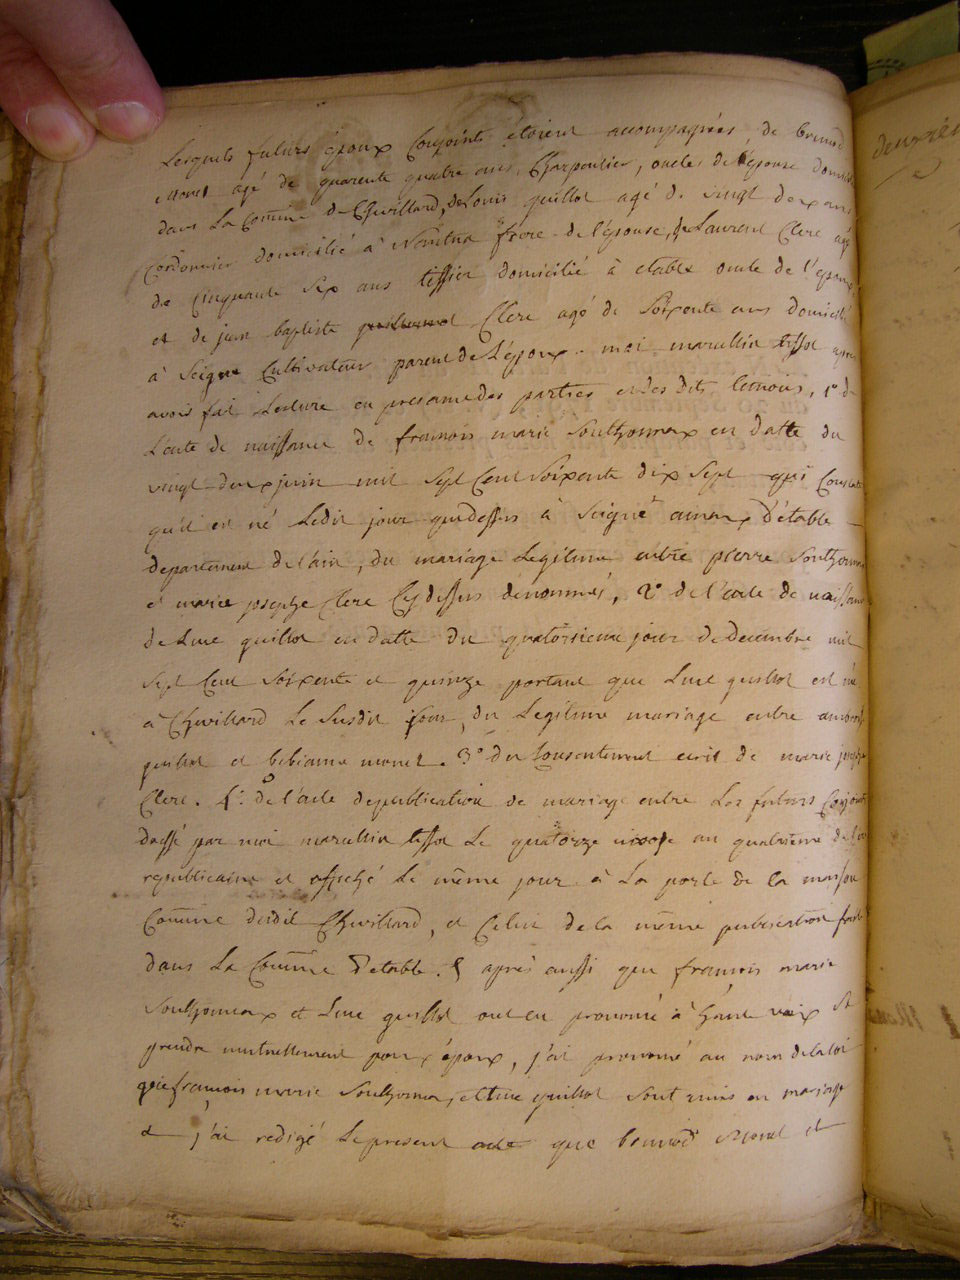 Lesquels futurs epoux Conjoints étoient accompagnés de benoid
monet agé de quarente quatre ans, Charpentier, oncles de l'épouse domici
dans La Comune de Chevillard, de Louis guillot agé de vingt deux ans
Cordonnier domicilié à Nantua frere de l'épouse, de Laurent Clerc agé
de Cinquante six ans tissier domicilié à etable oncle de l'epoux
et de jean baptiste Clerc agé de Soixente ans domicilié
à Seigne Cultivateur parent de L'epoux. moi marcellin tissot apres
avoir fait Lecture en presance des parties et des dits temoins, 1° de
L'acte de naissance de francois marie Southonnax en datte du
vingt deux juin mil Sept Cent Soixente dix Sept qui Constate
qu'il est né Ledit jour que dessus à Seigne d'étable
departement de l'ain, du mariage Legitime entre pierre Southonna
et marie josephe Clerc Cy dessus denommés, 2° de l'acte de naissance
de Luce guillot en datte du quatorsieme jour de decembre mil
Sept Cent Soixente et quinze portant que Luce guillot est né
à Chevillard Le Susdit jour, du Legitime mariage entre
guillot et bibianne monet. 3° du Consentement ecrit de marie josephe
Clerc. 4°. de l'acte de publication de mariage entre Les futurs Conjoints
dressé par moi marcellin tissot Le quatorze nivose an quatrieme de l'ere
republicaine et affiché Le même jour à La porte de la maison
Comune dudit Chevillard, et Celui de la même publication faite
dans La Comune d'etable. & après aussi que francois marie
Southonnax et Luce guillot ont eu prononcé à haute voix Se
prendre mutuellement pour époux, j'ai prononcé au nom de la loi
que francois marie Southonnax et Luce guillot sont unis en mariage
et j'ai redigé Le present acte que benoid monet et